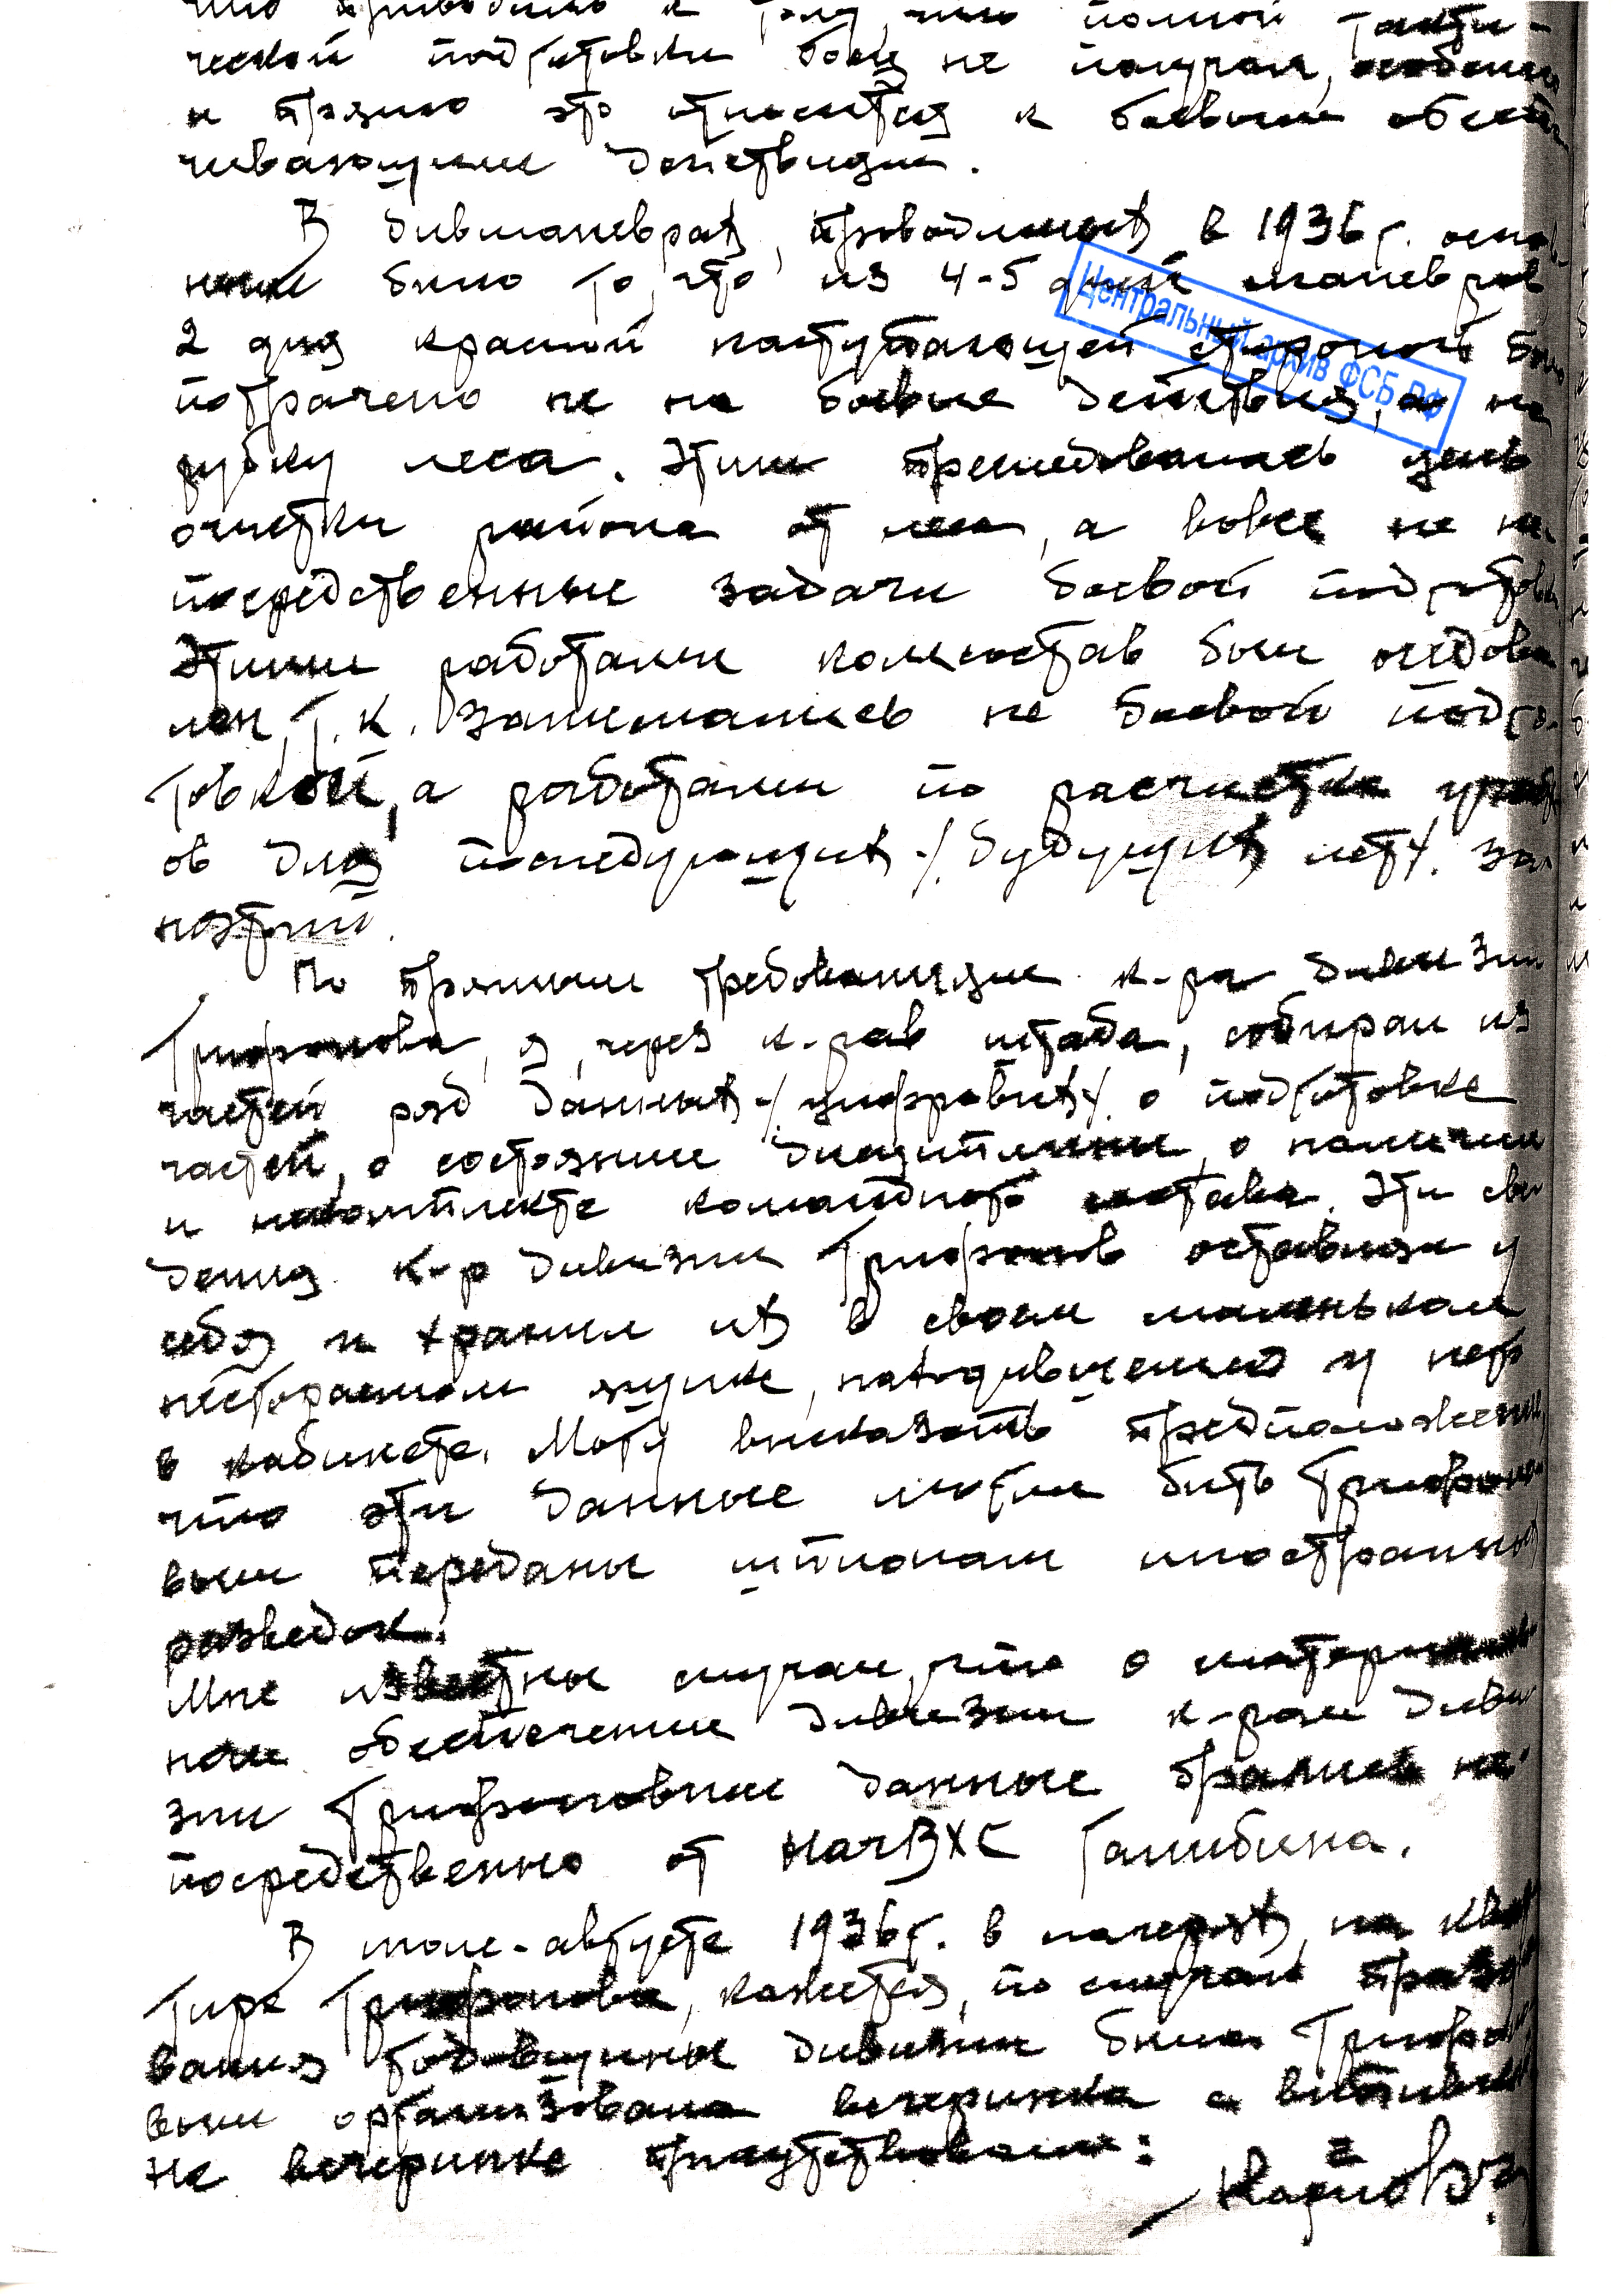 что приводило к тому, что полной такти-
ческой подготовки боец не получал, особенно
и прямо это относится к боевым обеспе
чивающим действиям.
В дивманеврах, проводимых в 1936 г. основ
ным было то, что из 4-5 дней маневров
2 дня красной наступающей стороной было
потрачено не на боевые действия, а на
рубку леса. Этим преследовалась цель
очистки района от леса, а вовсе не не-
посредственные задачи боевой подготовки
Этими работами комсостав был недово
лен, т.к. занимались не боевой подго-
товкой, а работами по расчистке
ов для последующих /будущих лет/ за-
нятий.
По прямым требованиям к-ра дивизии
Трифонова, я, через к-ров штаба, собирал из
частей ряд данных /цифровых/ о подготовке
частей, о состоянии дисциплины, о наличии
и некомплекте командного состава. Эти све
дения к-р дивизии Трифонов оставлял у
себя и хранил их в своем маленьком
несгораемом ящике, находившемся у него
в кабинете. Могу высказать предположение,
что эти данные могли быть Трифоно
вым переданы шпионам иностранных
разведок.
Мне известны случаи, что о материаль
ном обеспечении дивизии к-ром диви
зии Трифоновым данные брались не-
посредственно от НачВХС Галибина.
В июле-августе 1936 г. в лагерях, на квар
тире Трифонова, кажется, по случаю праздно
вания годовщины дивизии была Трифоно
вым организована вечеринка с выпивкой
На вечеринке присутствовали:
Центральный архив ФСБ РФ